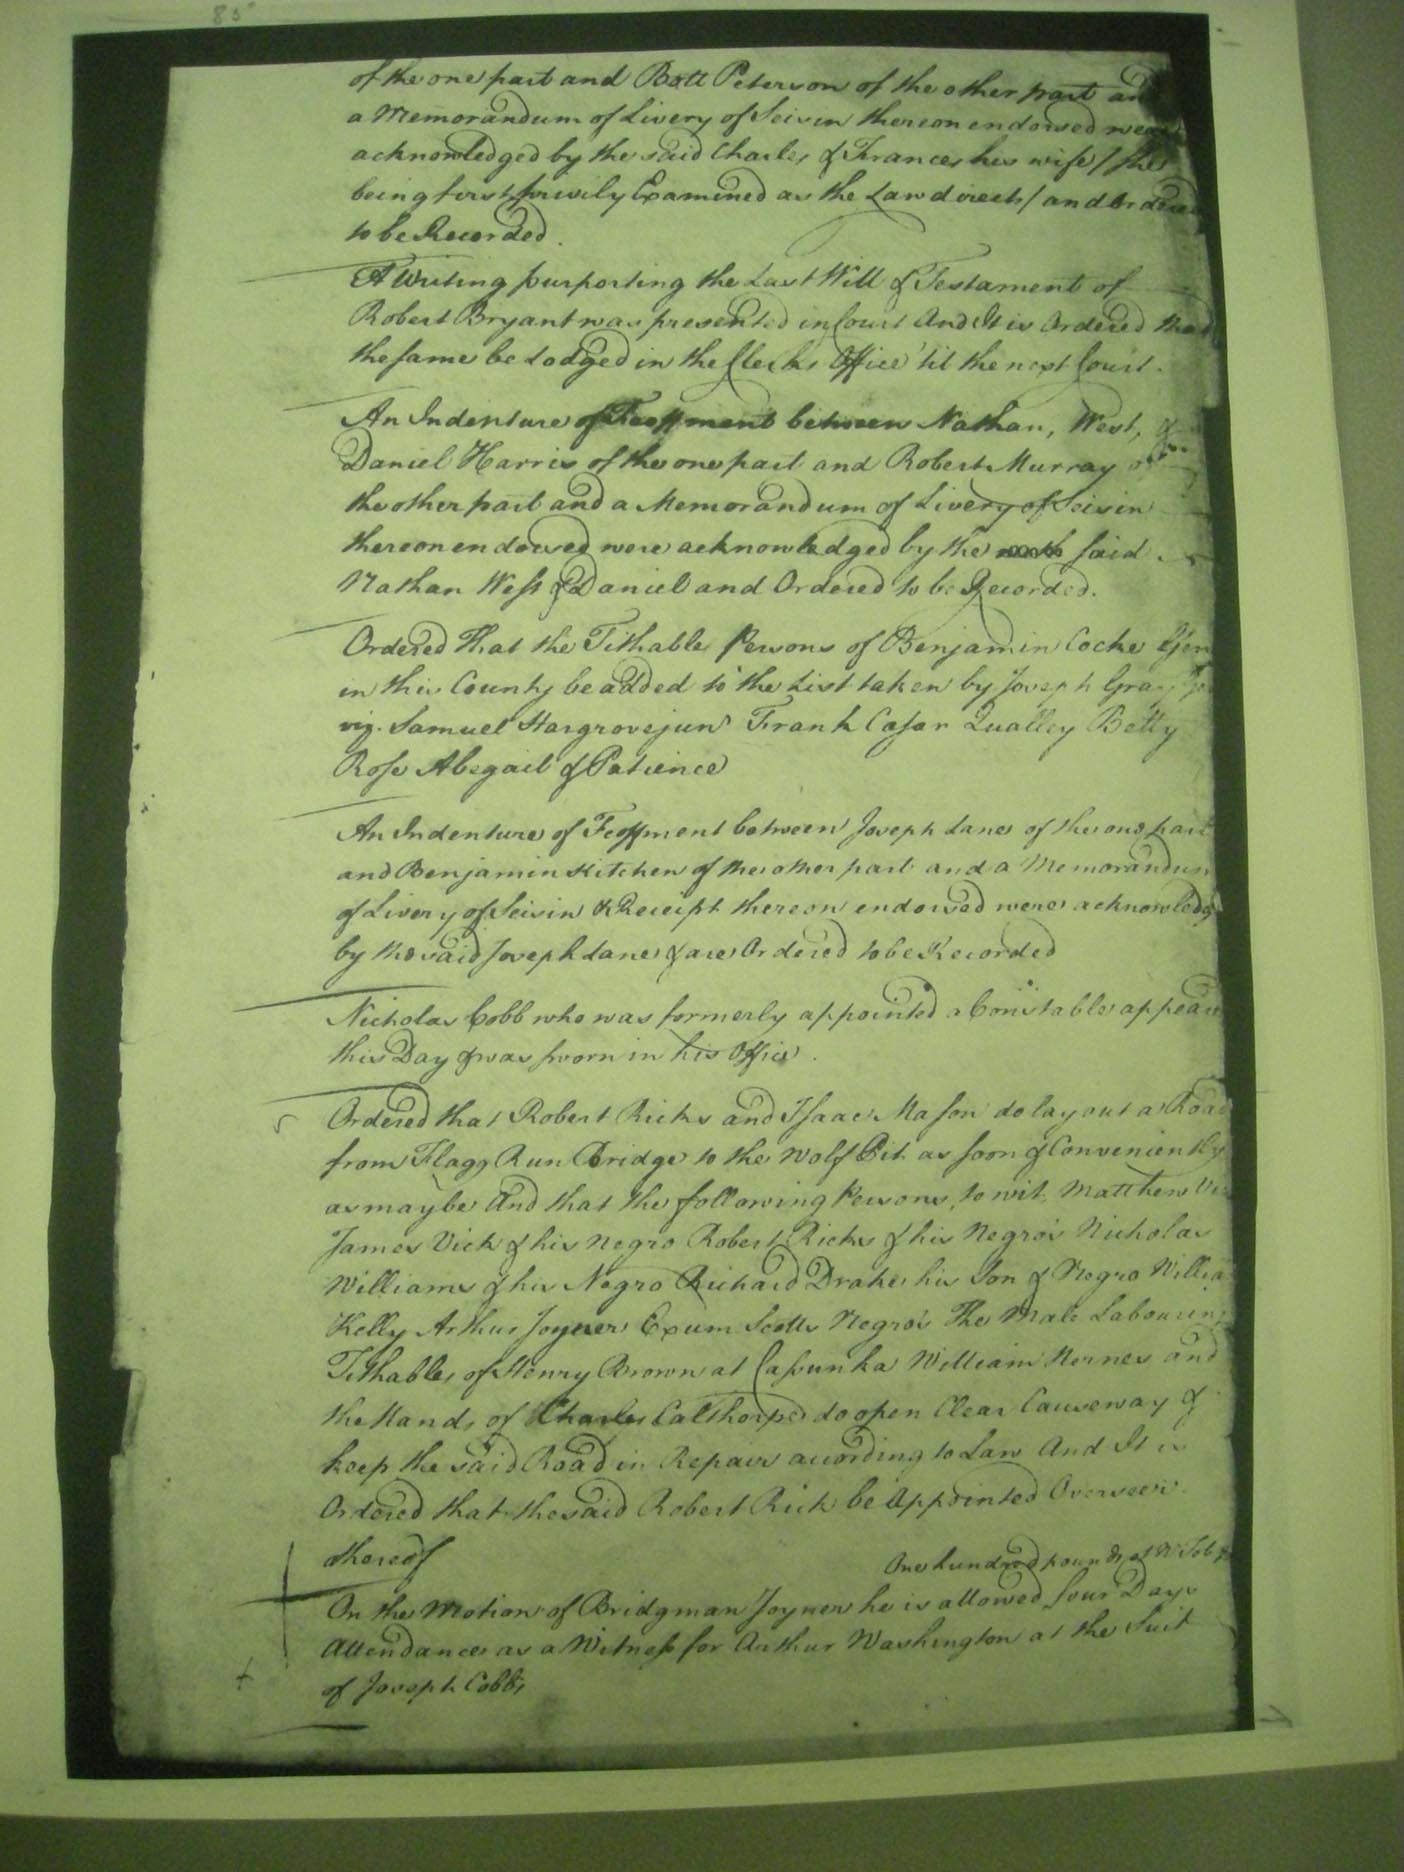 85
of the one part and Batt Peterson of the other part and
a Memorandum of Livery of Seisin thereon endorsed were
acknowledged by the said Charles & Frances his wife / she
being first privily Examined as the Law directs / and Ordered
to be Recorded.
A Writing purporting the Last Will & Testament of
Robert Bryant was presented in Court And It is Ordered that
the same be Lodged in the Clerks Office 'til the next Court.
An Indenture of Feoffment between Nathan, West, &
Daniel Harris of the one part and Robert Murray of
the other part and a Memorandum of Livery of Seisin
thereon endorsed were acknowledged by the said
Nathan West & Daniel and Ordered to be Recorded.
Ordered That the Tithable Persons of Benjamin Cocke Gen
in this County be added to the List taken by Joseph Gray
viz. Samuel Hargrove junr Frank Casar Qualley Betty
Rose Abegail & Patience
An Indenture of Feoffment between Joseph Lane of the one part
and Benjamin Kitchen of the other part and a Memorandum
of Livery of Seisin & Receipt thereon endorsed were acknowledg
by the said Joseph Lane & are Ordered to be Recorded
Nicholas Cobb who was formerly appointed a Constable appear
this Day & was sworn in his Office.
Ordered that Robert Ricks and Isaac Mason do lay out a Road
from Flagg Run Bridge to the Wolf Pit as soon & Conveniently
as may be And that the following Persons, to wit, Matthew
James Vick & his Negro Robert Ricks & his Negro's Nicholas
Williams & his Negro Richard Drake his Son & Negro Willia
Kelly Arthur Joyner Exum Scotts Negro's The Male Labouring
Tithables of Henry Brown at William Hernes and
the Hands of Charles Calthorpe do open Clear Causeway &
keep the said Road in Repair according to Law And It is
Ordered that the said Robert Rick be Appointed Overseer
thereof
One hundred pounds of
On the Motion of Bridgman Joyner he is allowed four Days
Attendance as a Witness for Arthur Washington at the Suit
of Joseph Cobbs